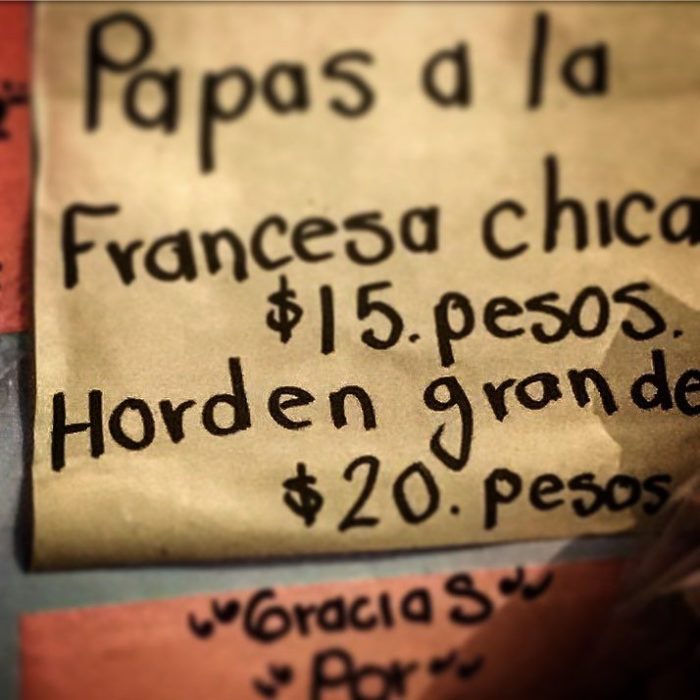 Papas a la
Francesa chica
$15. pesos.
Horden grande
$20. pesos
"Gracias"
"Por"